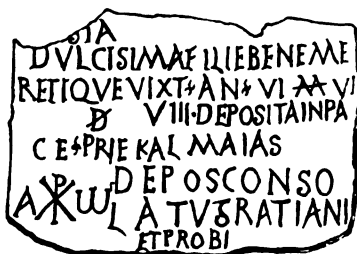 IA
DVLCISIMAE FILIE BENEME
RETI QVE VIXT AN VI M VI
D VIII·DEPOSITA IN PA
CE PRIE KAL MAIAS
DEPOS CONSO
A ☧ ω LATV GRATIANI
ET PROBI